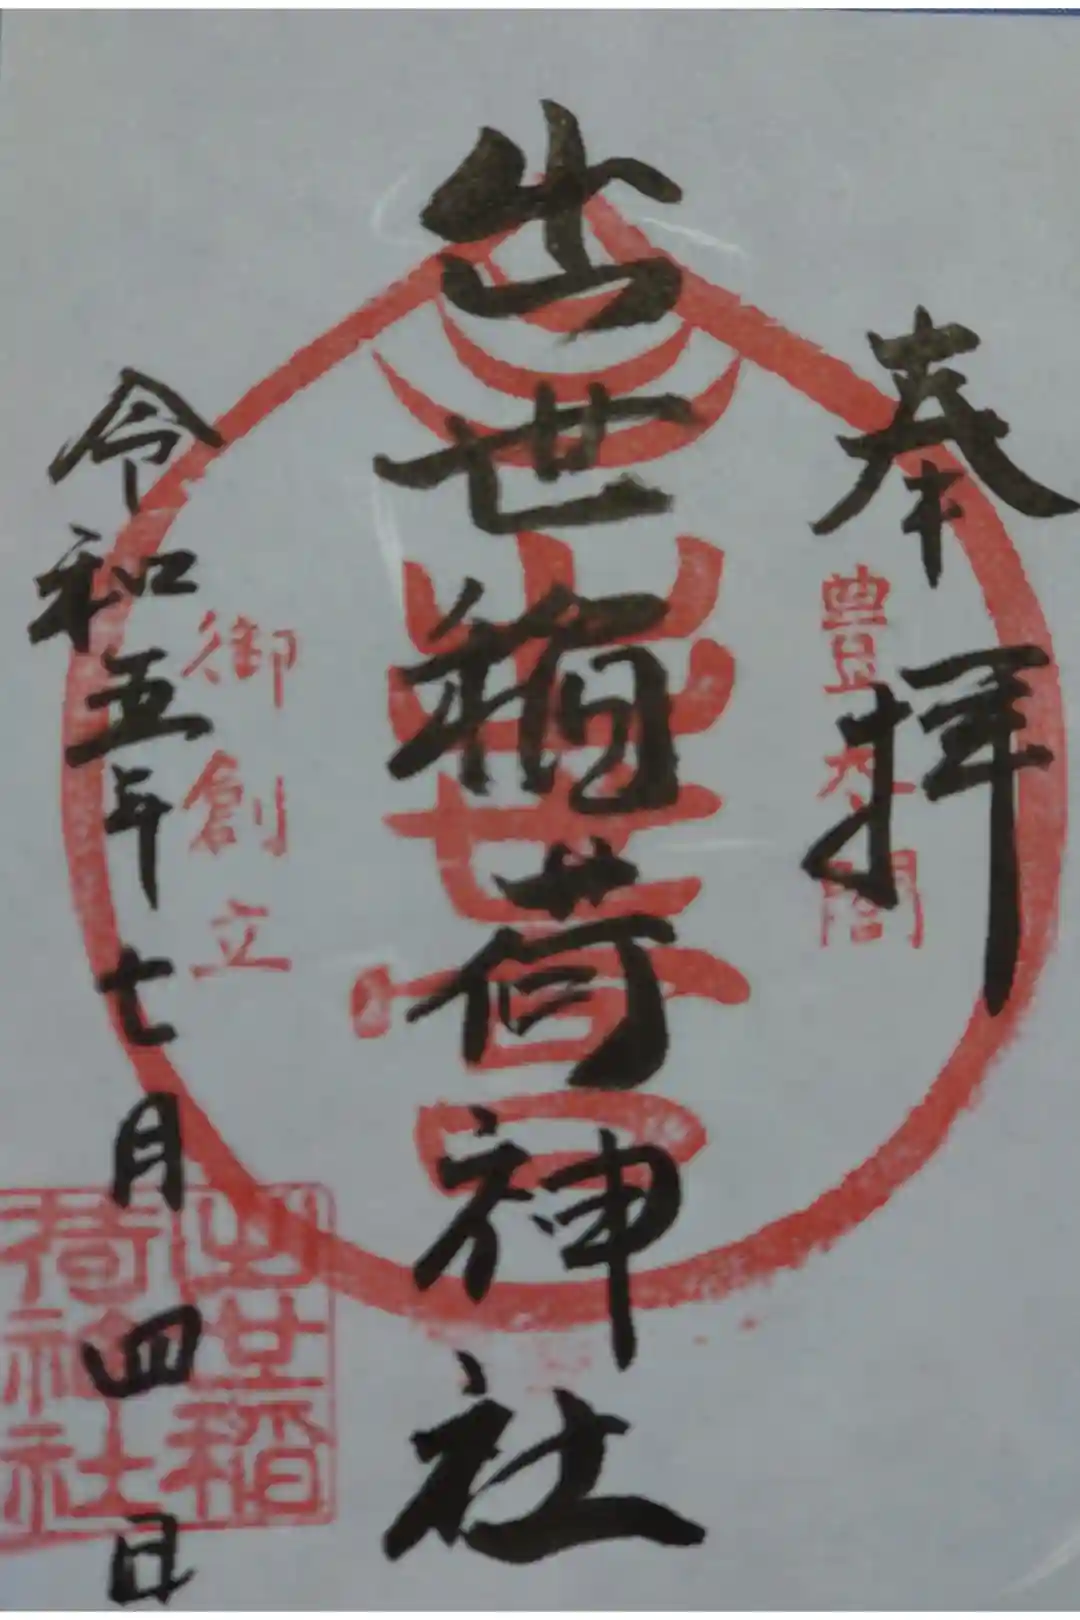 奉拝
豊太閤
出世稲荷神社
出世
御創立
令和五年七月四日
出世稲
荷神社